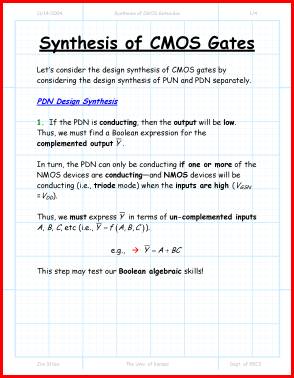 11/14/2004 Synthesis of CMOS Gates.doc 1/4
Synthesis of CMOS Gates
Let's consider the design synthesis of CMOS gates by
considering the design synthesis of PUN and PDN separately.
PDN Design Synthesis
1. If the PDN is conducting, then the output will be low.
Thus, we must find a Boolean expression for the
complemented output Y̅.
In turn, the PDN can only be conducting if one or more of the
NMOS devices are conducting—and NMOS devices will be
conducting (i.e., triode mode) when the inputs are high (V_GSN
= V_DD).
Thus, we must express Y̅ in terms of un-complemented inputs
A, B, C, etc (i.e., Y̅ = f (A,B,C)).
e.g., → Y̅ = A + BC
This step may test our Boolean algebraic skills!
Jim Stiles The Univ. of Kansas Dept. of EECS